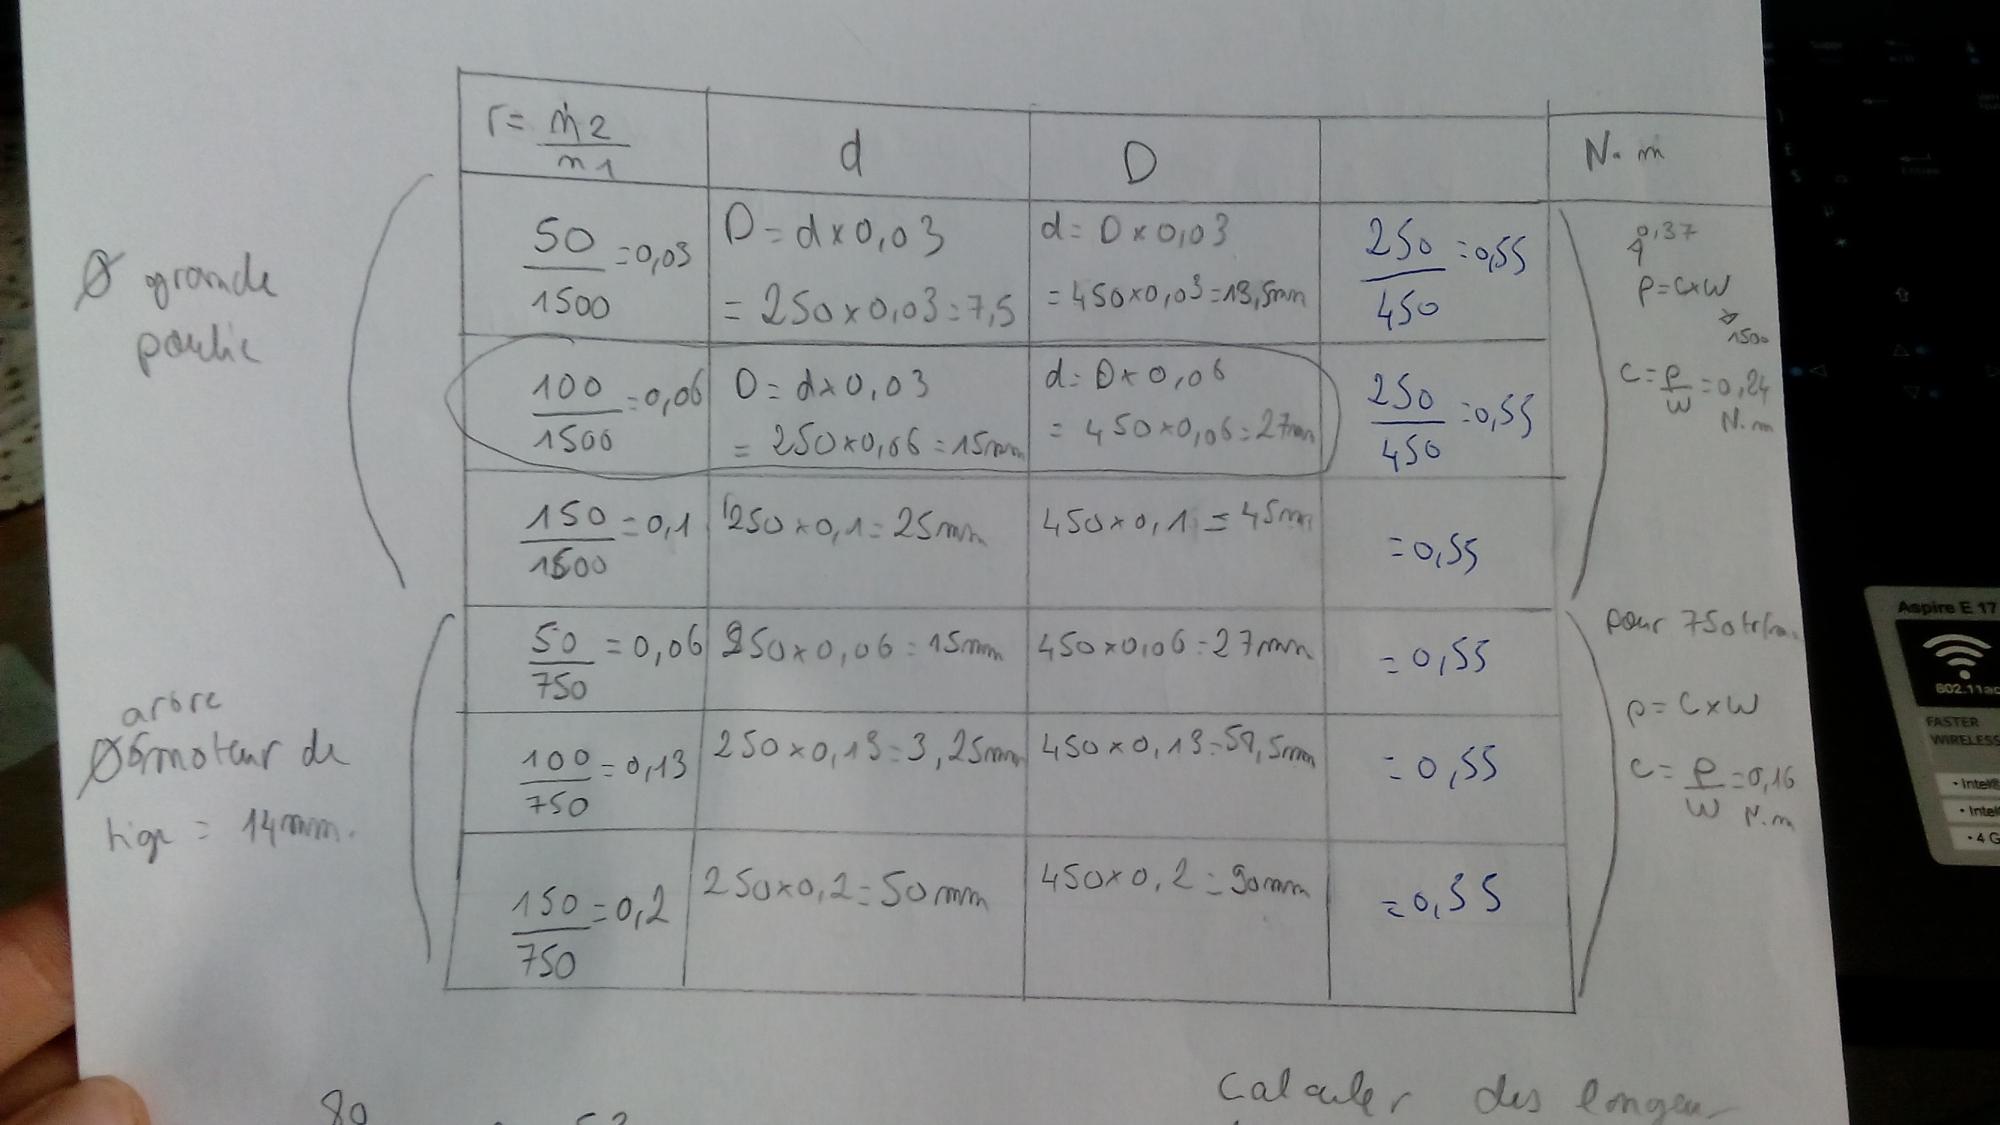 r = n2 / n1
d
D
N.m
50 / 1500 = 0,03
D = d x 0,03
= 250 x 0,03 = 7,5
d = D x 0,03
= 450 x 0,03 = 13,5mm
250 / 450 = 0,55
0,37
P = C x W
1500
C = P / W = 0,24
N.m
Ø grande
poulie
100 / 1500 = 0,06
D = d x 0,03
= 250 x 0,06 = 15mm
d = D x 0,06
= 450 x 0,06 = 27mm
250 / 450 = 0,55
150 / 1500 = 0,1
250 x 0,1 = 25mm
450 x 0,1 = 45mm
= 0,55
50 / 750 = 0,06
250 x 0,06 = 15mm
450 x 0,06 = 27mm
= 0,55
pour 750tr/m
arbre
Ø moteur de
tige = 14mm.
100 / 750 = 0,13
250 x 0,13 = 3,25mm
450 x 0,13 = 58,5mm
= 0,55
P = C x W
C = P / W = 0,16
N.m
150 / 750 = 0,2
250 x 0,2 = 50mm
450 x 0,2 = 90mm
= 0,55
80
Calculer des longueur
Aspire E 17
802.11ac
FASTER
WIRELESS
• Intel®
• Intel
• 4 G